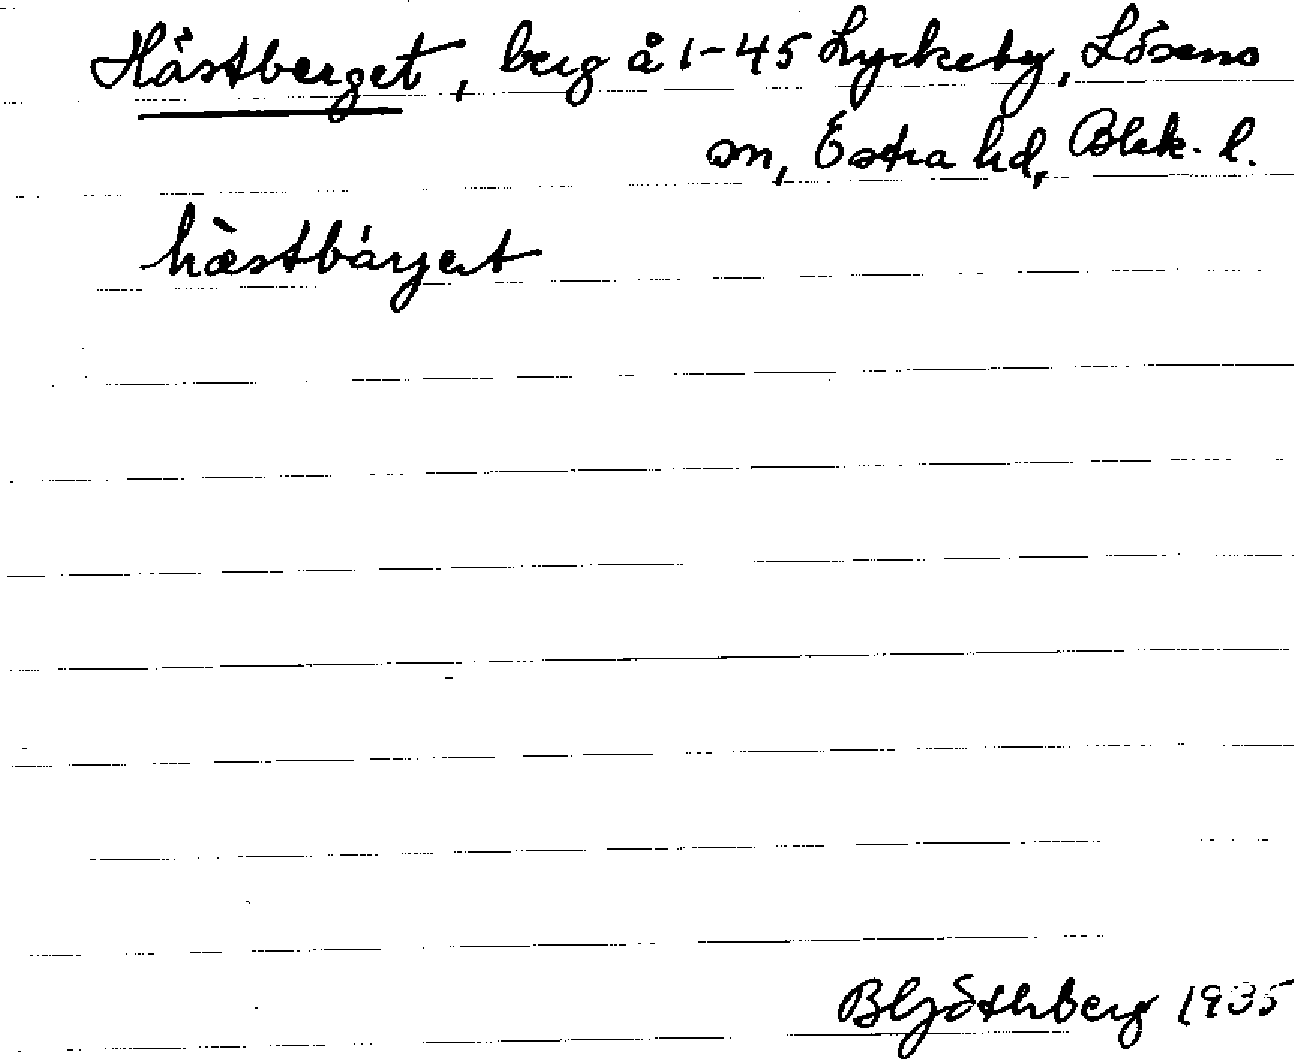 Hästberget, berg å 1-45 Lyckeby, Lösens
sn, Östra hd, Blek. l.
hæ̀stbárjet
B Götherberg 1935